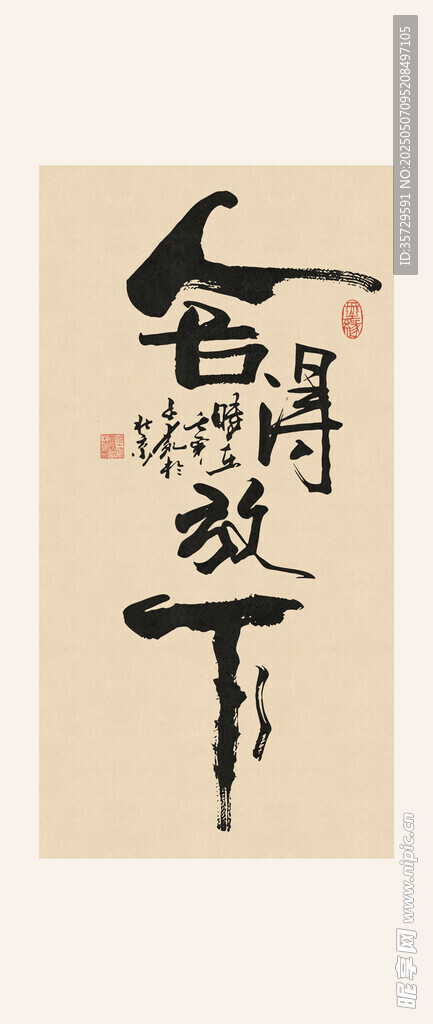 舍得
放下
時在
於
北京
ID:35729591 NO:20250507095208497105
昵享网 www.nipic.cn